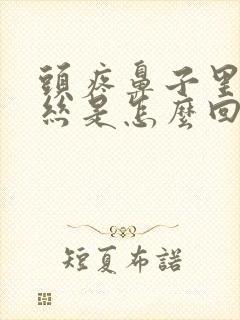 頭疼鼻子里
絲是怎麼回
短夏布諾